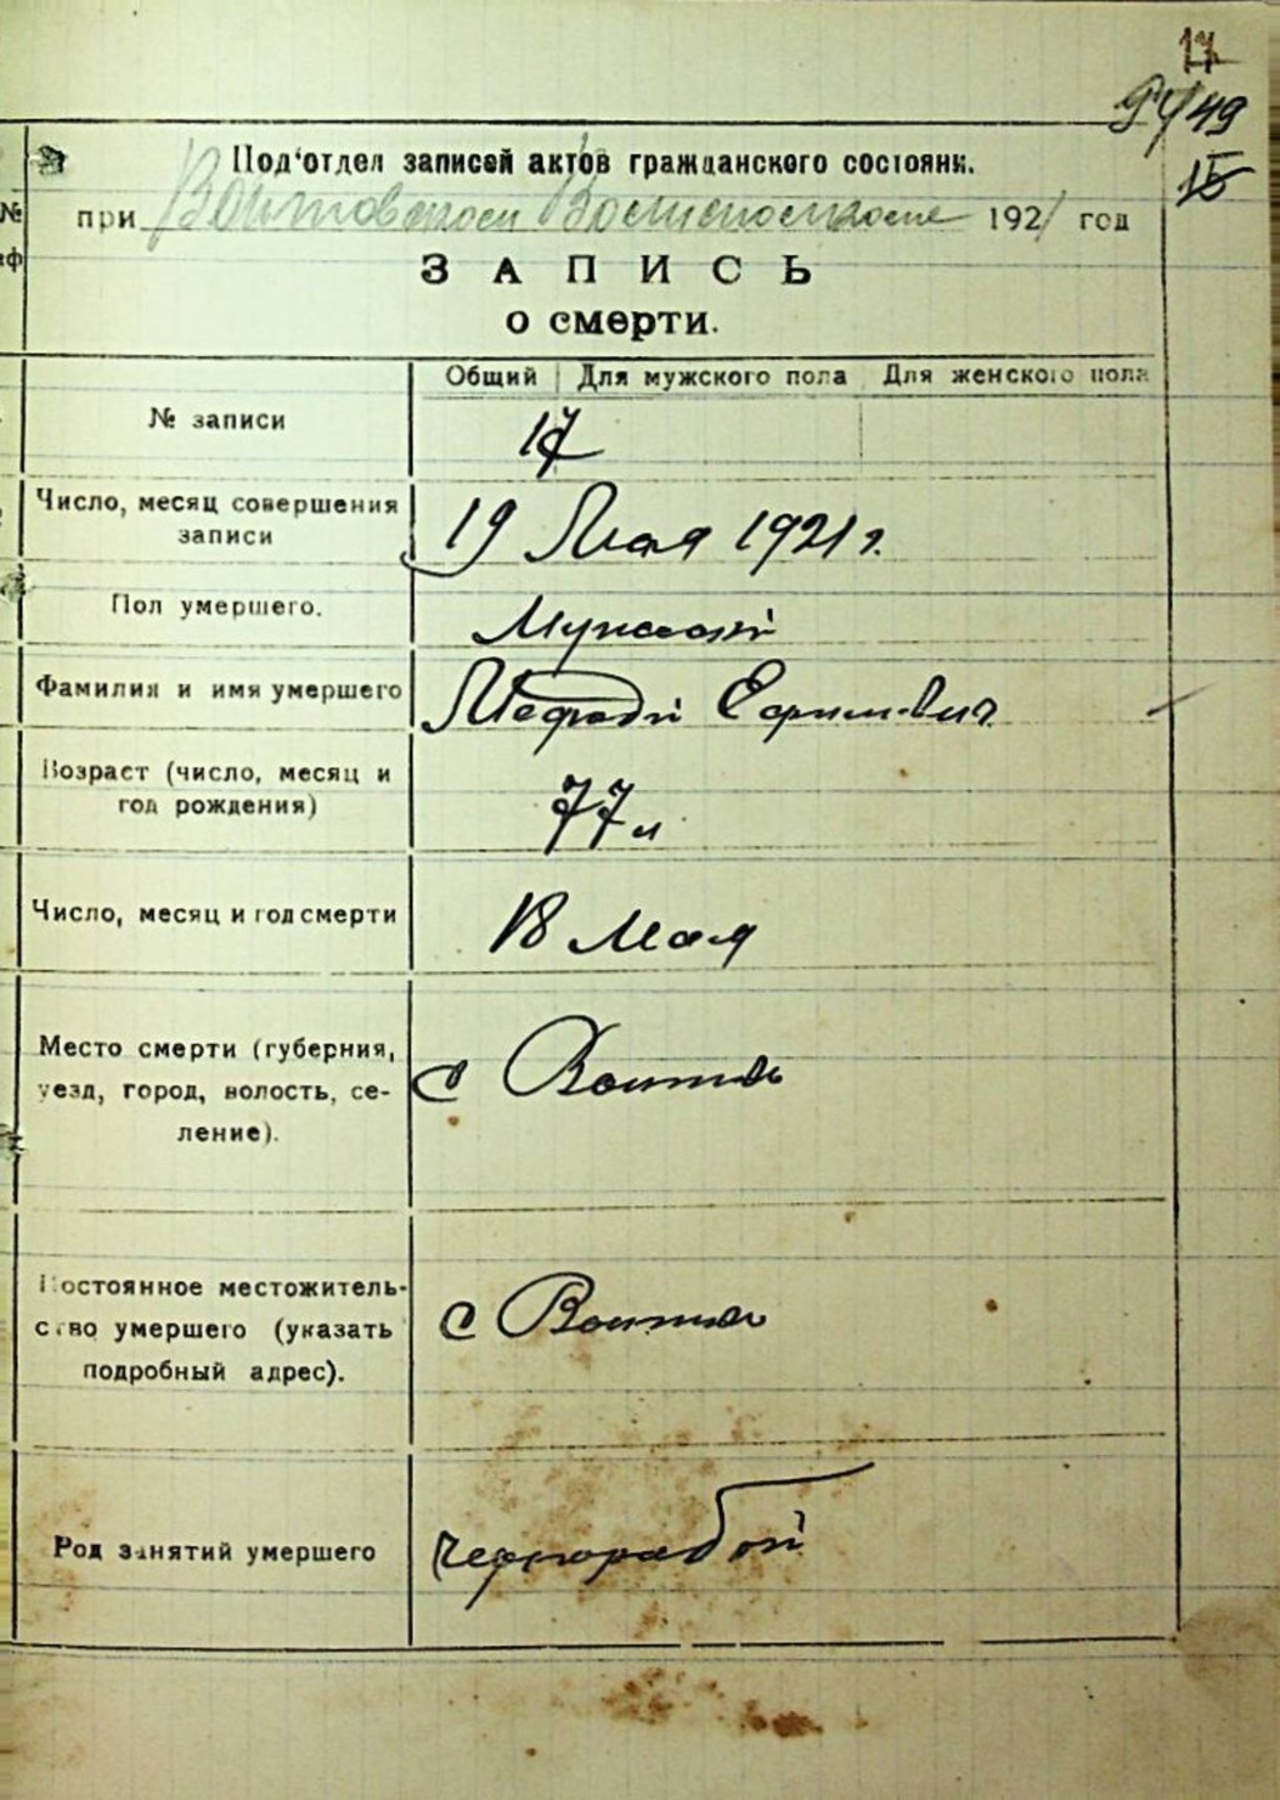 17
49
15
Под'отдел записей актов гражданского состояни.
№ при Войтовском Волисполкоме 1921 год
аф
ЗАПИСЬ
о смерти.
Общий Для мужского пола Для женского пола
№ записи 17
Число, месяц совершения 19 Мая 1921 г.
записи
Пол умершего. Мужской
Фамилия и имя умершего
Возраст (число, месяц и 77 л
год рождения)
Число, месяц и год смерти 18 Мая
Место смерти (губерния, с
уезд, город, волость, се-
ление).
Постоянное местожитель- с
ство умершего (указать
подробный адрес).
Род занятий умершего чернорабой